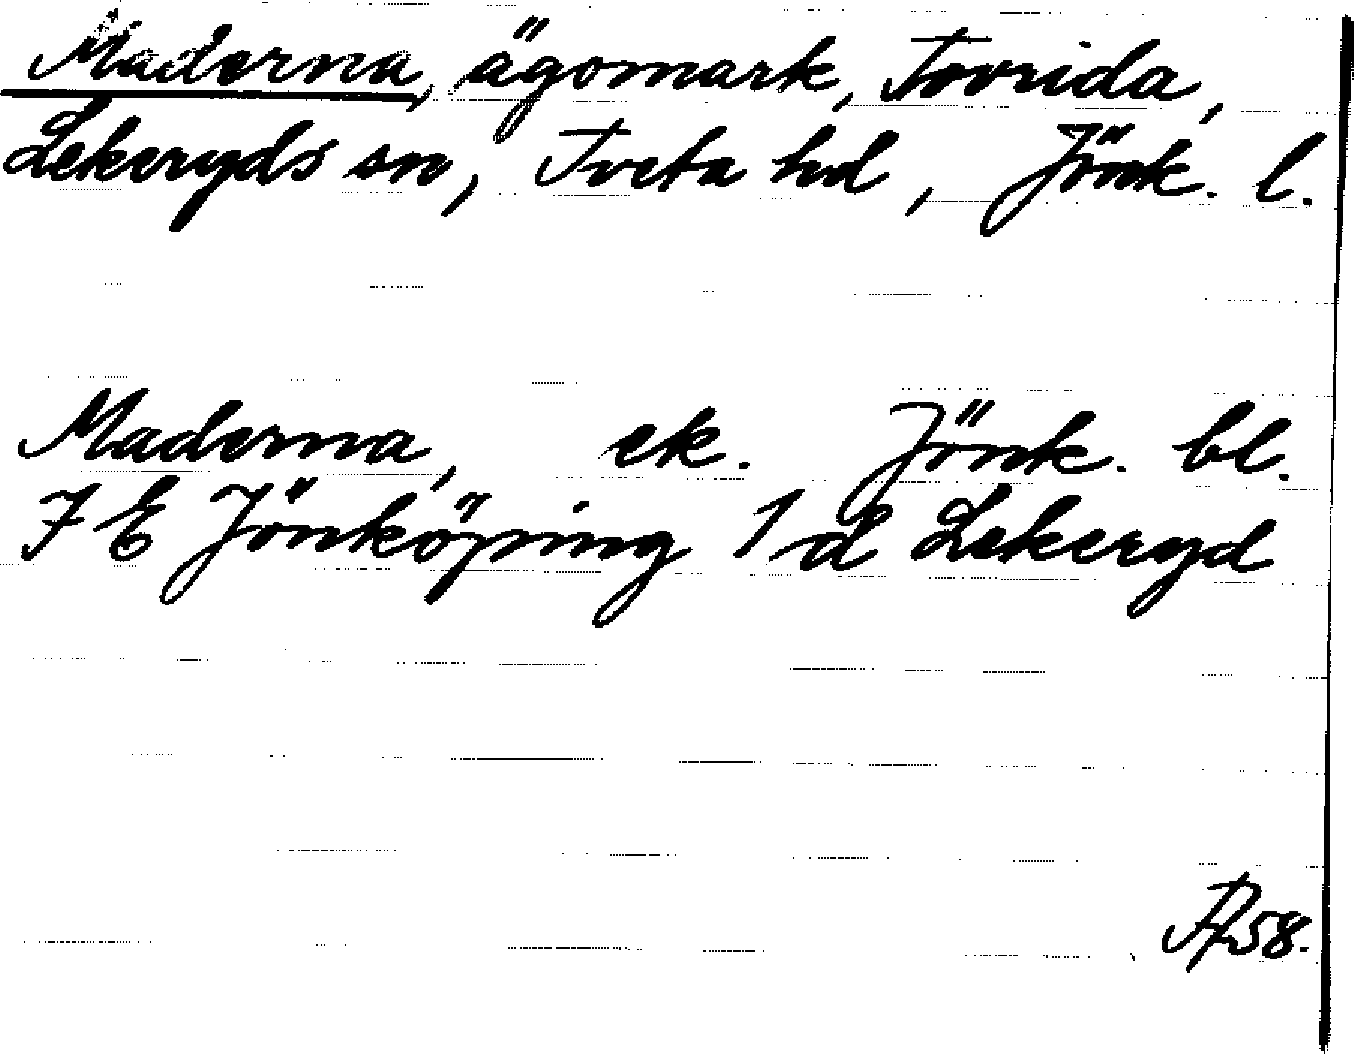 Maderna, ägomark, Tovrida,
Lekeryds sn, Tveta hd, Jönk. l.
Maderna, ek. Jönk. bl.
7 E Jönköping 1 d Lekeryd
58.